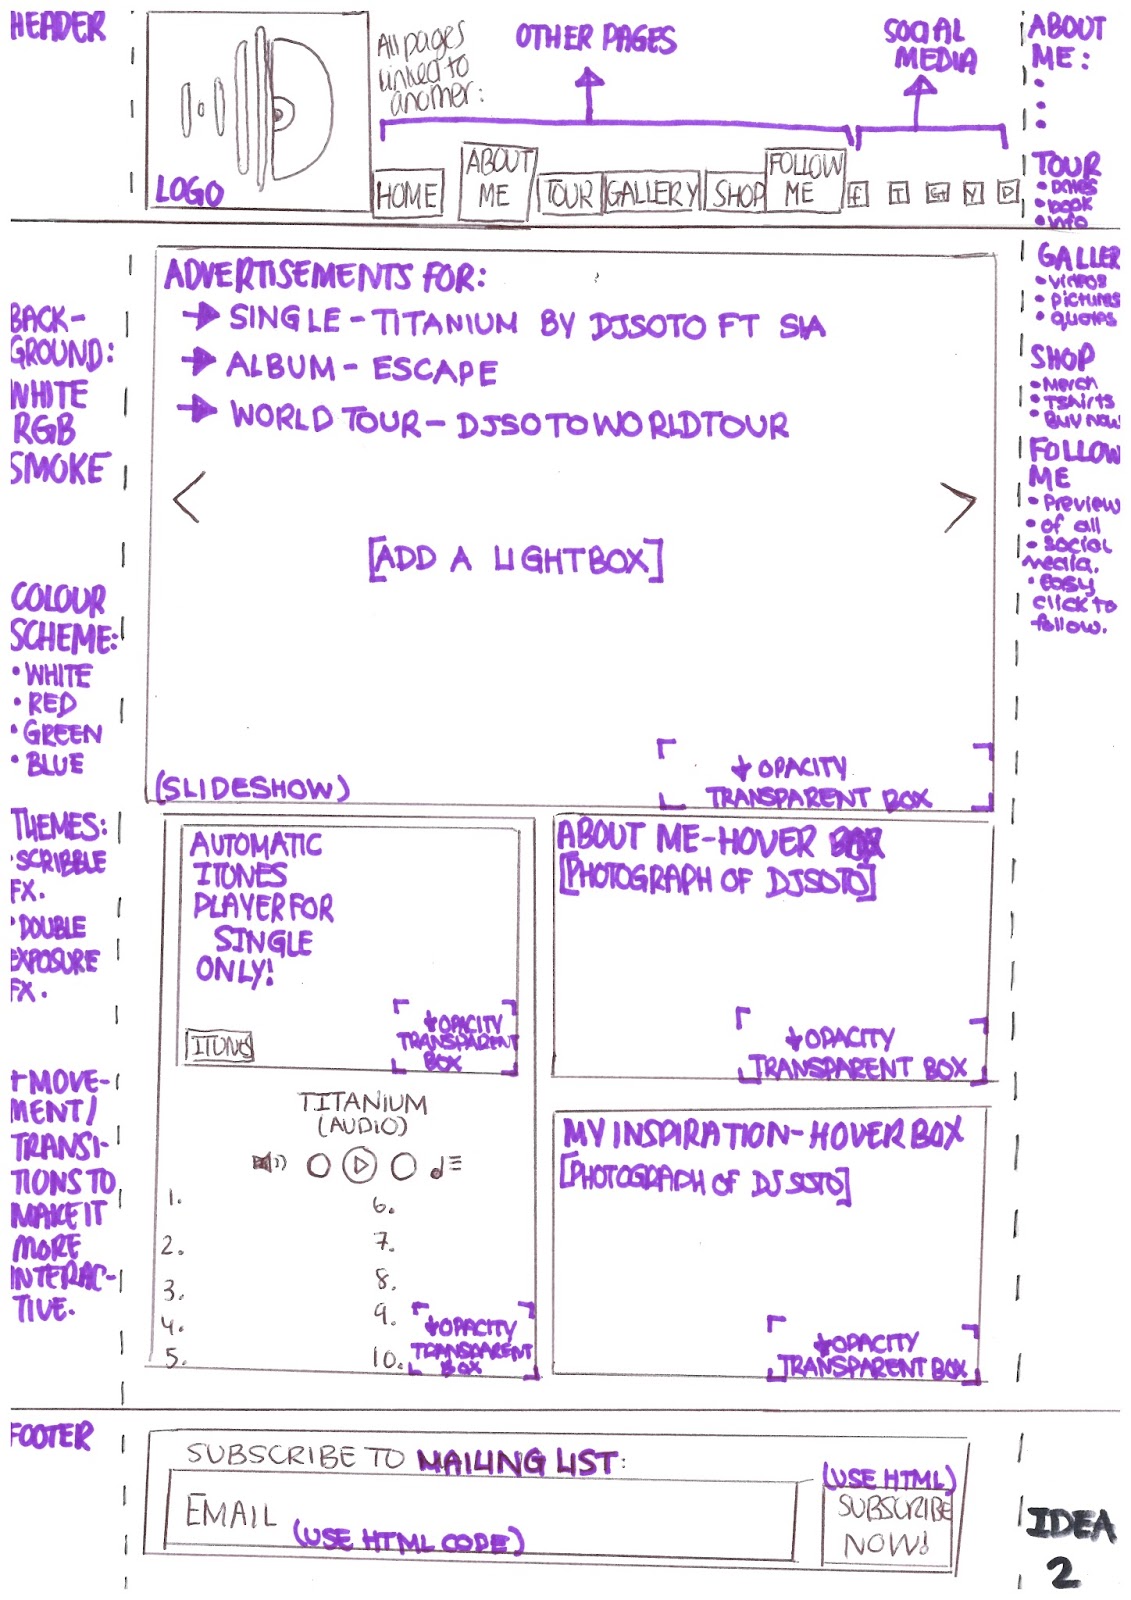 HEADER
LOGO
All pages
linked to
another:
OTHER PAGES
SOCIAL
MEDIA
HOME
ABOUT
ME
TOUR
GALLERY
SHOP
FOLLOW
ME
f
T
G+
Y
ABOUT
ME:
TOUR
• Dates
• book
• info
GALLER
• videos
• pictures
• quotes
SHOP
• Merch
• Tshirts
• Buy now
FOLLOW
ME
• Preview
• of all
• social
media.
• easy
click to
follow.
BACK-
GROUND:
WHITE
RGB
SMOKE
COLOUR
SCHEME:
• WHITE
• RED
• GREEN
• BLUE
THEMES:
• SCRIBBLE
FX.
• DOUBLE
EXPOSURE
FX.
+ MOVE-
MENT/
TRANSI-
TIONS TO
MAKE IT
MORE
INTERAC-
TIVE.
ADVERTISEMENTS FOR:
→ SINGLE - TITANIUM BY DJSOTO FT SIA
→ ALBUM - ESCAPE
→ WORLD TOUR - DJSOTOWORLDTOUR
< >
[ADD A LIGHTBOX]
(SLIDESHOW)
↓ OPACITY
TRANSPARENT BOX
AUTOMATIC
ITUNES
PLAYER FOR
SINGLE
ONLY!
ITUNES
↓ OPACITY
TRANSPARENT
BOX
TITANIUM
(AUDIO)
1.
2.
3.
4.
5.
6.
7.
8.
9.
10.
↓ OPACITY
TRANSPARENT
BOX
ABOUT ME - HOVER BOX
[PHOTOGRAPH OF DJSOTO]
↓ OPACITY
TRANSPARENT BOX
MY INSPIRATION - HOVER BOX
[PHOTOGRAPH OF DJ SOTO]
↓ OPACITY
TRANSPARENT BOX
FOOTER
SUBSCRIBE TO MAILING LIST:
EMAIL
(USE HTML CODE)
(USE HTML)
SUBSCRIBE
NOW!
IDEA
2